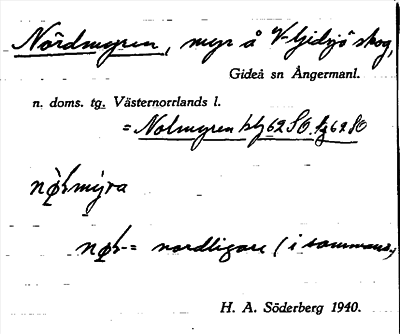 Nördmyren, myr å V-Gidsjö skog,
Gideå sn Ångermanl.
n. doms. tg. Västernorrlands l.
= Nolmyren
mýra
= nordligare (i sammans.)
H. A. Söderberg 1940.